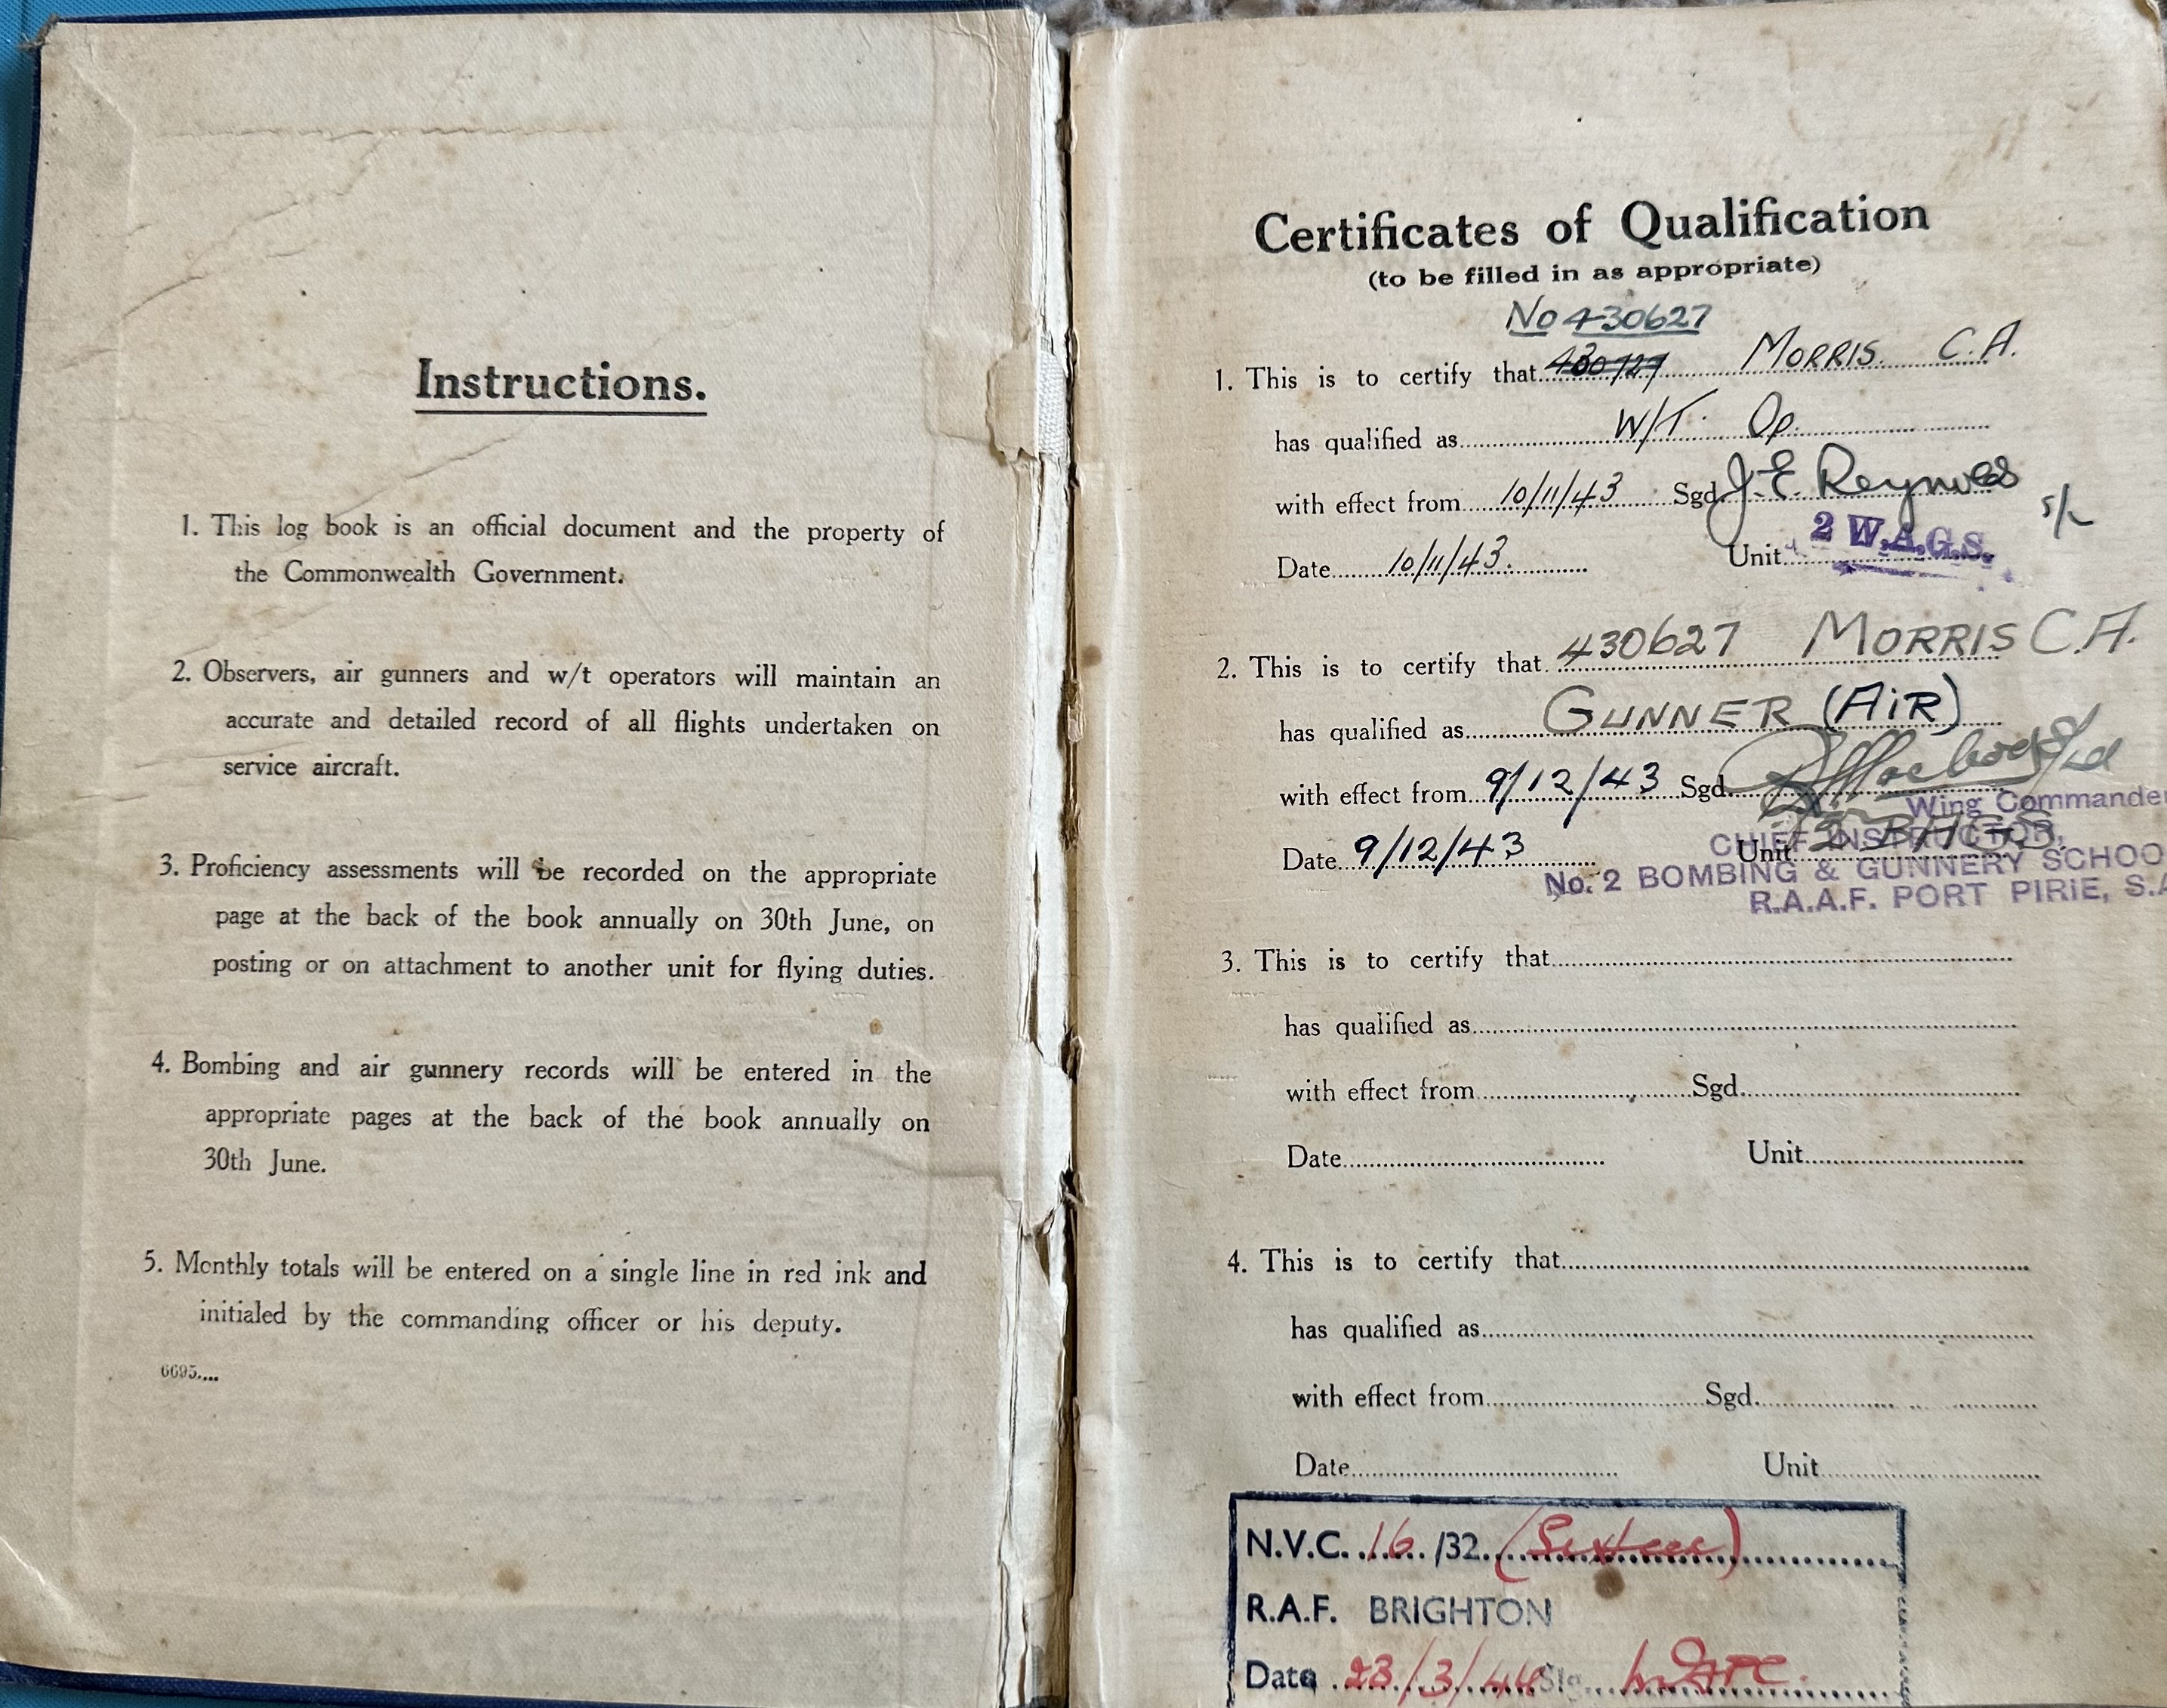 Instructions.
1. This log book is an official document and the property of
the Commonwealth Government.
2. Observers, air gunners and w/t operators will maintain an
accurate and detailed record of all flights undertaken on
service aircraft.
3. Proficiency assessments will be recorded on the appropriate
page at the back of the book annually on 30th June, on
posting or on attachment to another unit for flying duties.
4. Bombing and air gunnery records will be entered in the
appropriate pages at the back of the book annually on
30th June.
5. Monthly totals will be entered on a single line in red ink and
initialed by the commanding officer or his deputy.
6695....
Certificates of Qualification
(to be filled in as appropriate)
No 430627
1. This is to certify that MORRIS. C.A.
has qualified as W/T. Op.
with effect from 10/11/43 Sgd J.E. Reynolds S/L
Date 10/11/43. Unit 2 W.A.G.S.
2. This is to certify that 430627 MORRIS C.A.
has qualified as GUNNER (AIR)
with effect from 9/12/43 Sgd
Wing Commander
Date 9/12/43 Unit 2 B.A.G.S.
CHIEF INSTRUCTOR,
No. 2 BOMBING & GUNNERY SCHOO
R.A.A.F. PORT PIRIE, S.A
3. This is to certify that
has qualified as
with effect from Sgd.
Date Unit
4. This is to certify that
has qualified as
with effect from Sgd.
Date Unit
N.V.C. 16 /32 (Sixteen)
R.A.F. BRIGHTON
Date 23/3/44 Sig.